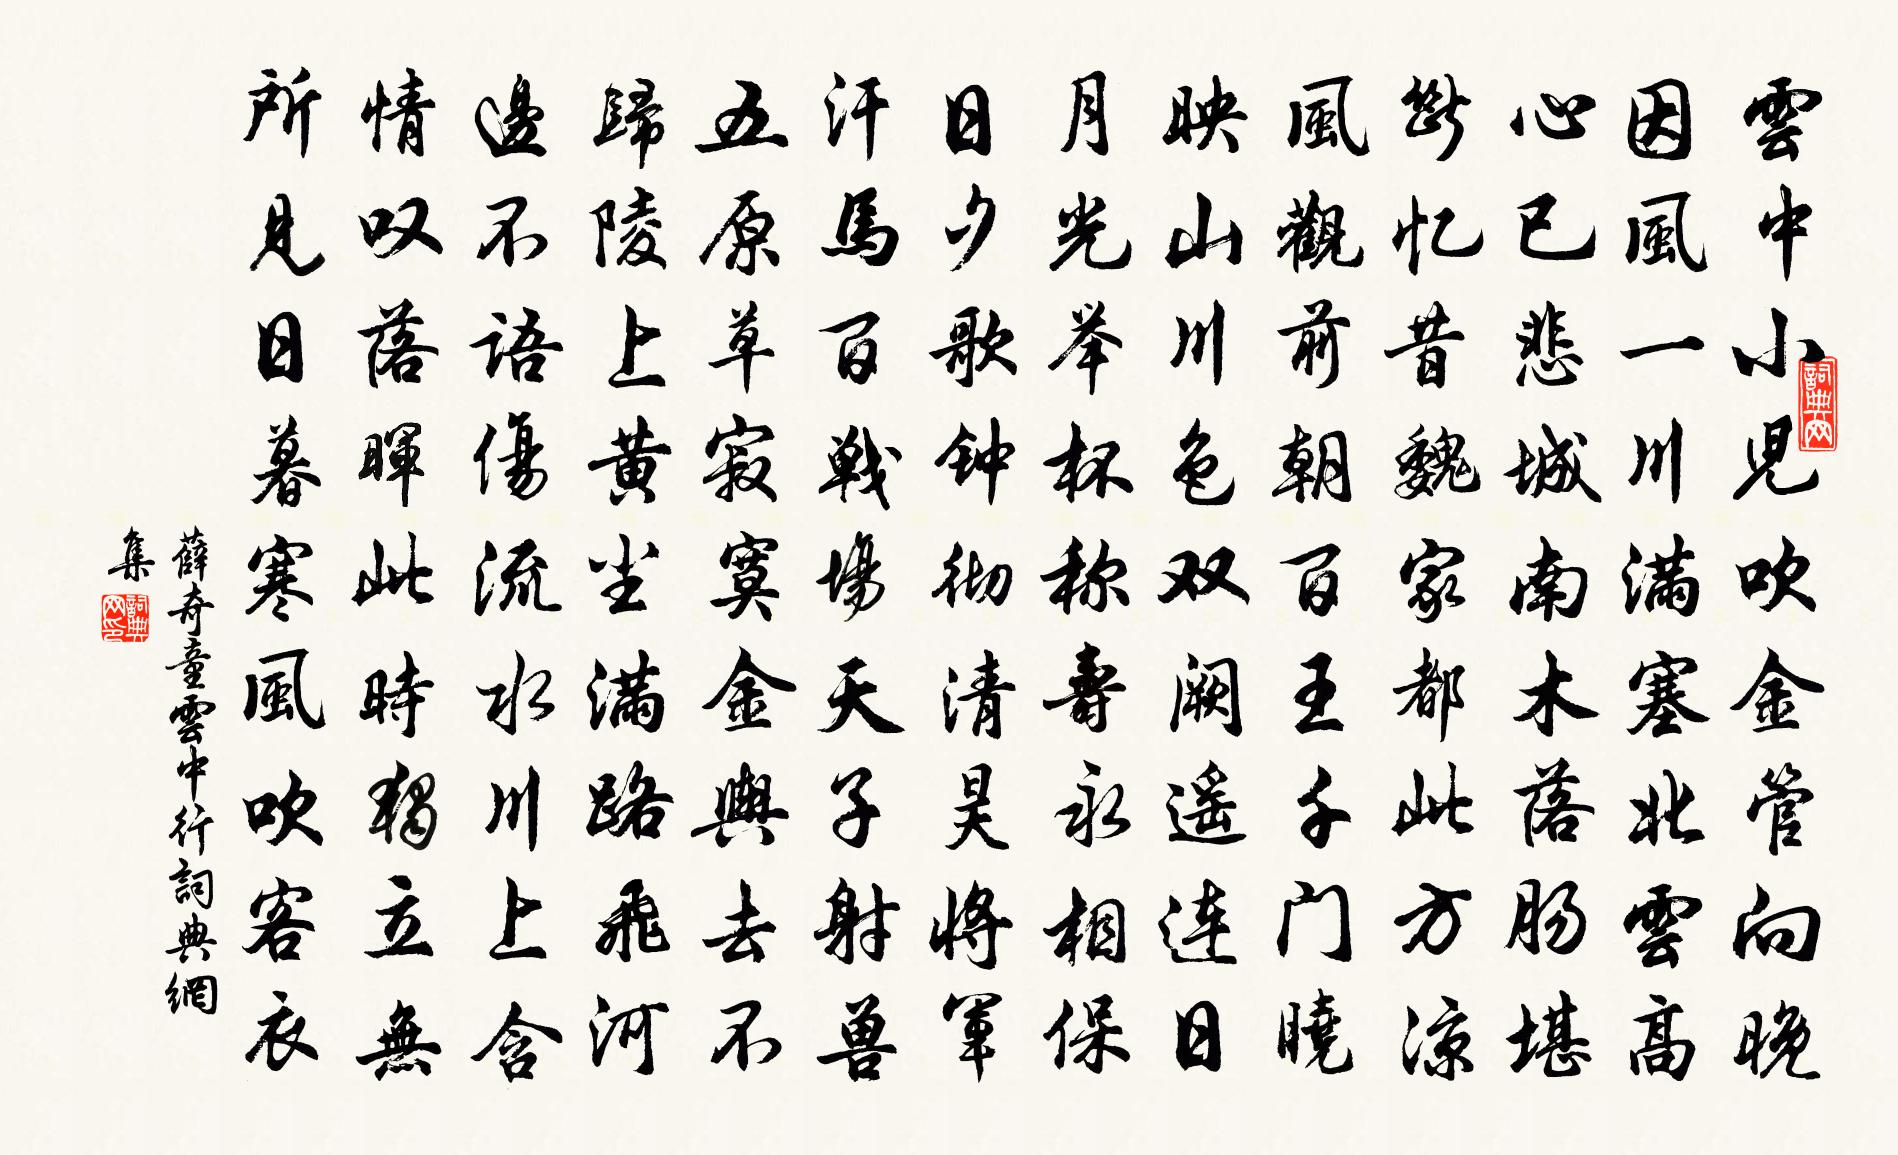 雲中小児吹金管向晚
因風一川满塞北雲高
心已悲城南木落肠堪
断忆昔魏家都此方凉
風觀前朝百王千门曉
映山川色双阙遥连日
月光举杯称壽永相保
日夕歌钟彻清昊将軍
汗馬百戰場天子射兽
五原草寂寞金輿去不
歸陵上黄尘满路飛河
邊不語傷流水川上含
情叹落暉此時獨立無
所見日暮寒風吹客衣
薛奇童雲中行詞典網
集
詞典网
詞典网印